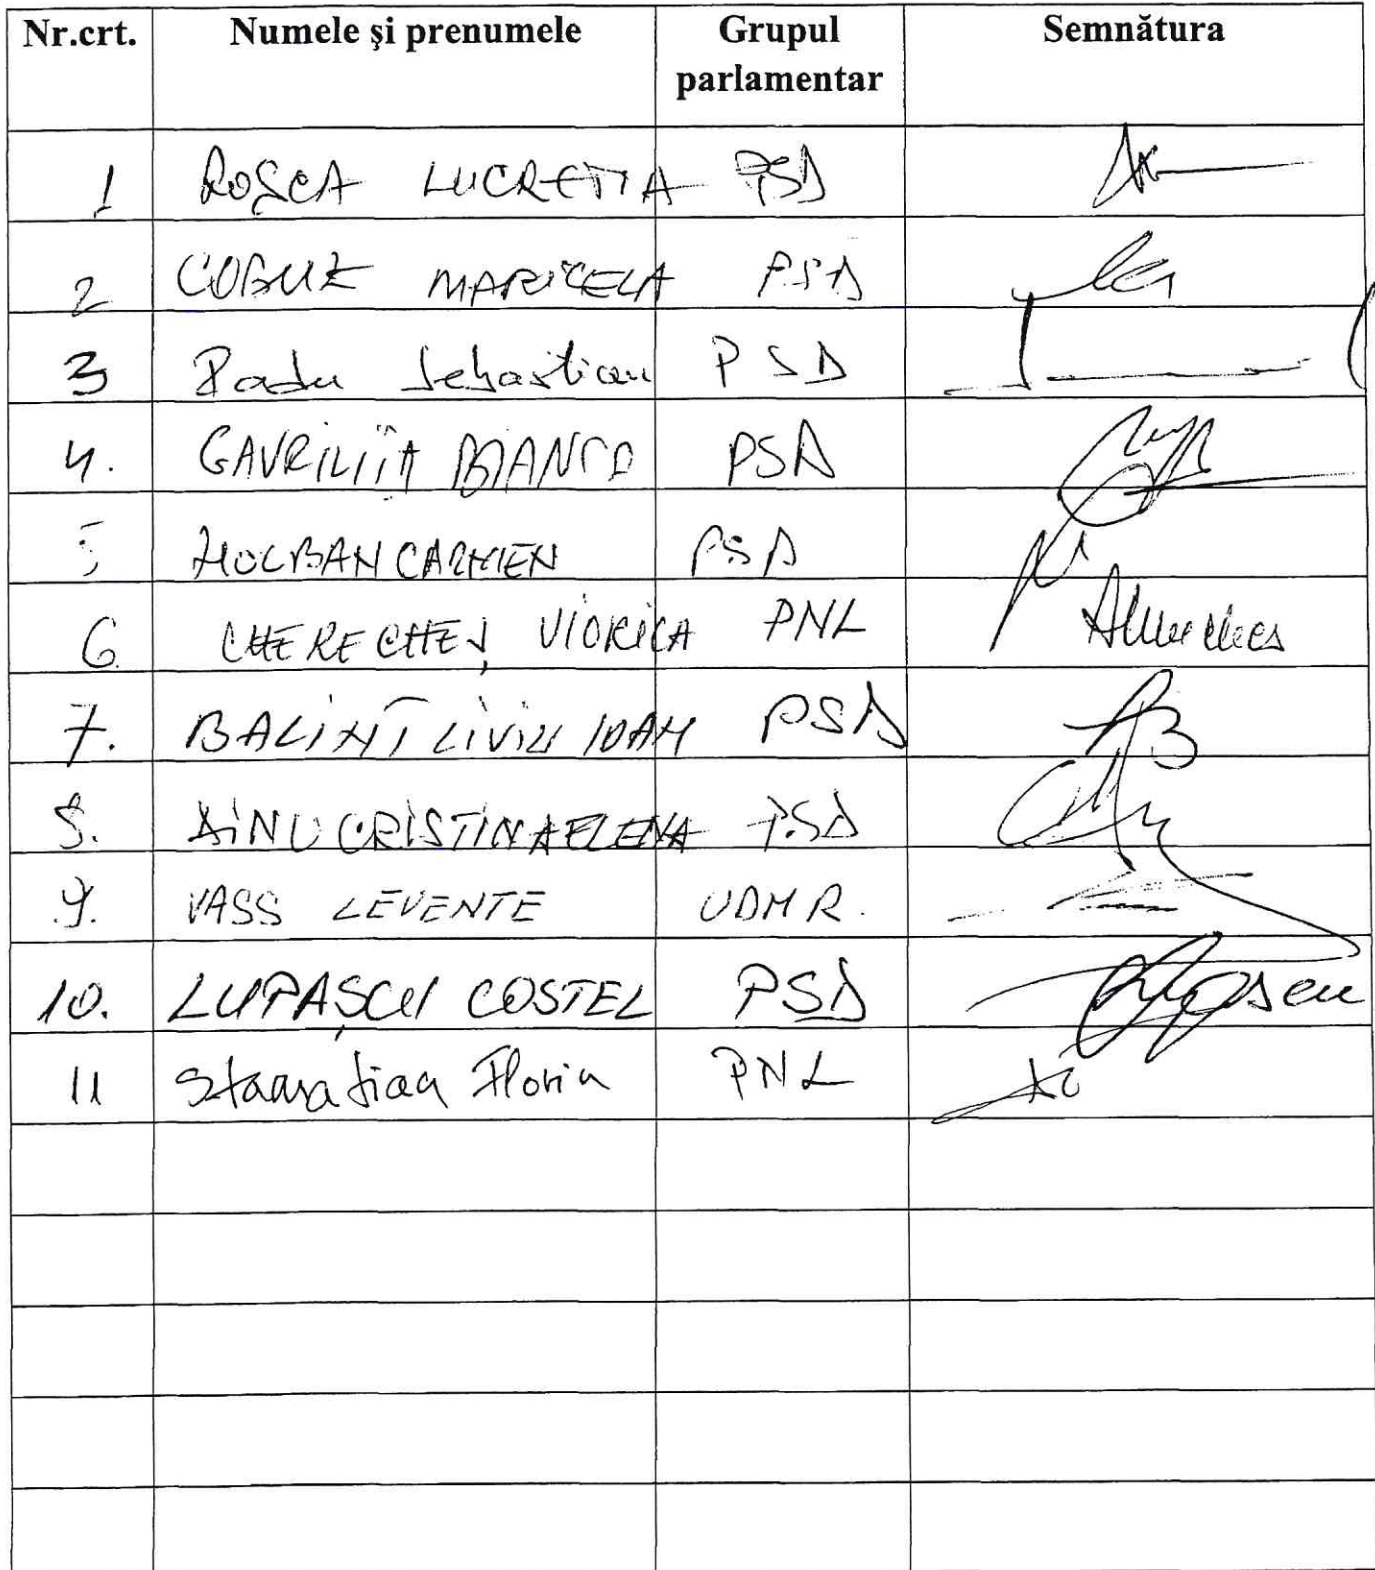 Nr.crt. Numele şi prenumele Grupul parlamentar Semnătura
1 ROŞCA LUCREŢIA PSD
2 COBUZ MARICELA PSD
3 Radu Sebastian PSD
4. GAVRILIŢĂ BIANCA PSD
5 HOLBAN CARMEN PSD
6 CHERECHEŞ VIORICA PNL
7. BALINT LIVIU IOAN PSD
8. DINU CRISTINA ELENA PSD
9. VASS LEVENTE UDMR.
10. LUPAŞCU COSTEL PSD
11 Stamatian Florin PNL